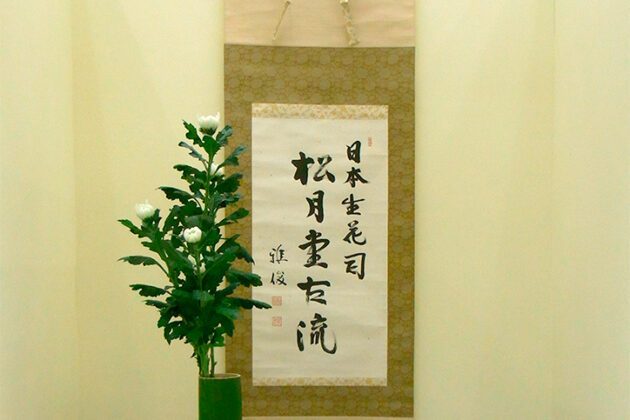 日本生花司
松月堂古流
雅俊